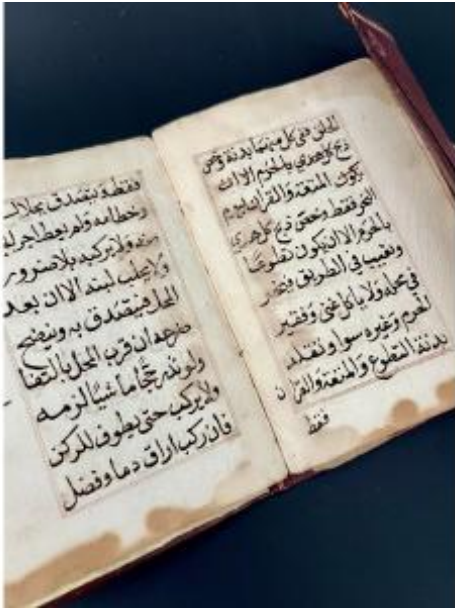 الحلق ففي كل منهما بدنة وخص
ذبح كل هدي بالحرم الا ان
يكون المتعة والقران بيوم
النحر فقط وخص ذبح كل هدي
بالحرم الا ان يكون تطوعا
وتعيب في الطريق فينحر
في محله ولا ياكله غني وفقير
الحرم وغيره سوا وتقلد
بدنة التطوع والمتعة والقران
فقط
فقط ويتصدق بجلاله
وخطامه ولم يعط اجر
منه ولا يركبه بلا ضرورة
ولا يحلب لبنه الا ان بعد
المحل فيتصدق به وينضح
ضرعه ان قرب المحل بالنقا
ولو نذر حجا ماشيا لزمه
ولا يركب حتى يطوف للركن
فان ركب اراق دما وفضل